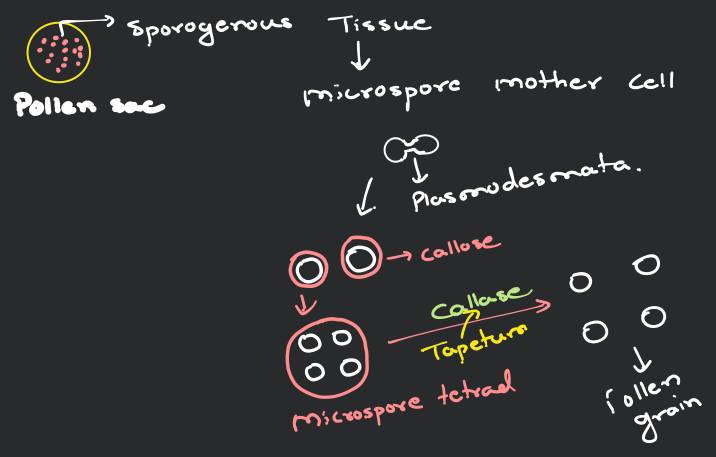 Sporogenous Tissue
Pollen sac
microspore mother cell
Plasmodesmata.
callose
Callase
Tapetum
microspore tetrad
Pollen
grain